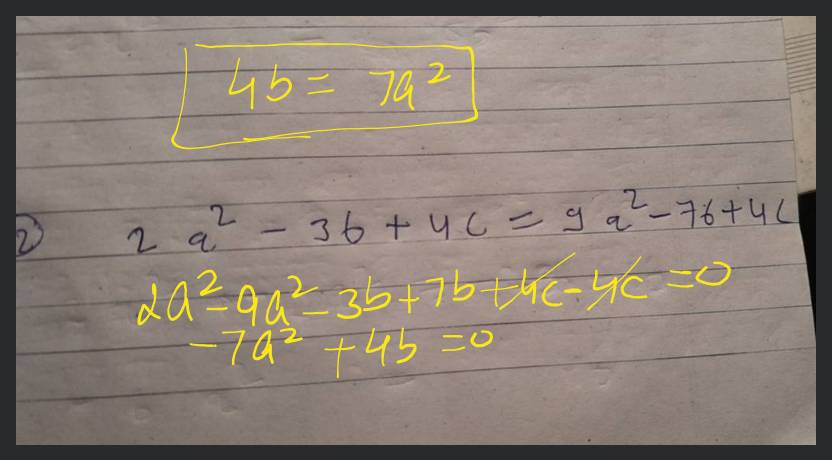 4b = 7a²
2) 2a² - 3b + 4c = 9a² - 7b + 4c
2a² - 9a² - 3b + 7b + 4c - 4c = 0
-7a² + 4b = 0